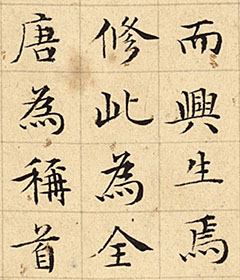 而興生焉
修此為全
唐為稱首